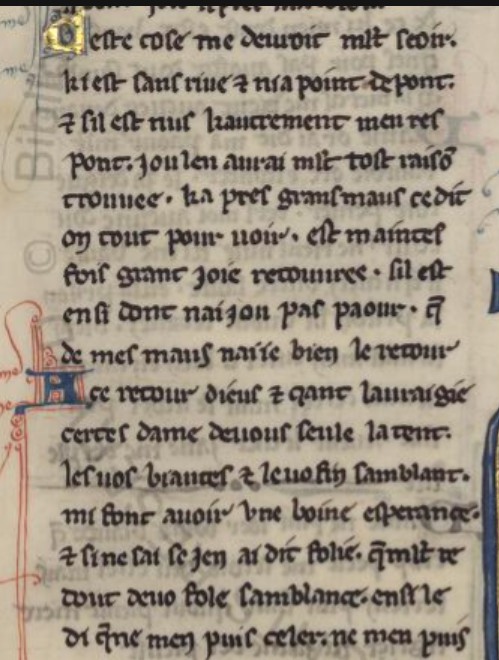 Ceste cose me deuroit mlt seoir.
ki est sans riue ⁊ ni a point de pont.
⁊ sil est nus kautrement men res
pont. jou len aurai mlt tost raisō
trouuee. ka pres grans maus ce dit
on tout pour uoir. est maintes
fois grant joie recouuree. sil est
ensi dont nai jou pas paour. q̄
de mes maus naiie bien le retour
A ce retour dieus ⁊ qant laurai gie
certes dame de uous seule latent.
les uos biautes ⁊ le uo fin samblant.
mi font auoir vne boine esperance.
⁊ si ne sai se jen ai dit folie. q̄ mlt re
dout de uo fole samblance. ensi le
di q̄ ne men puis celer. ne men puis